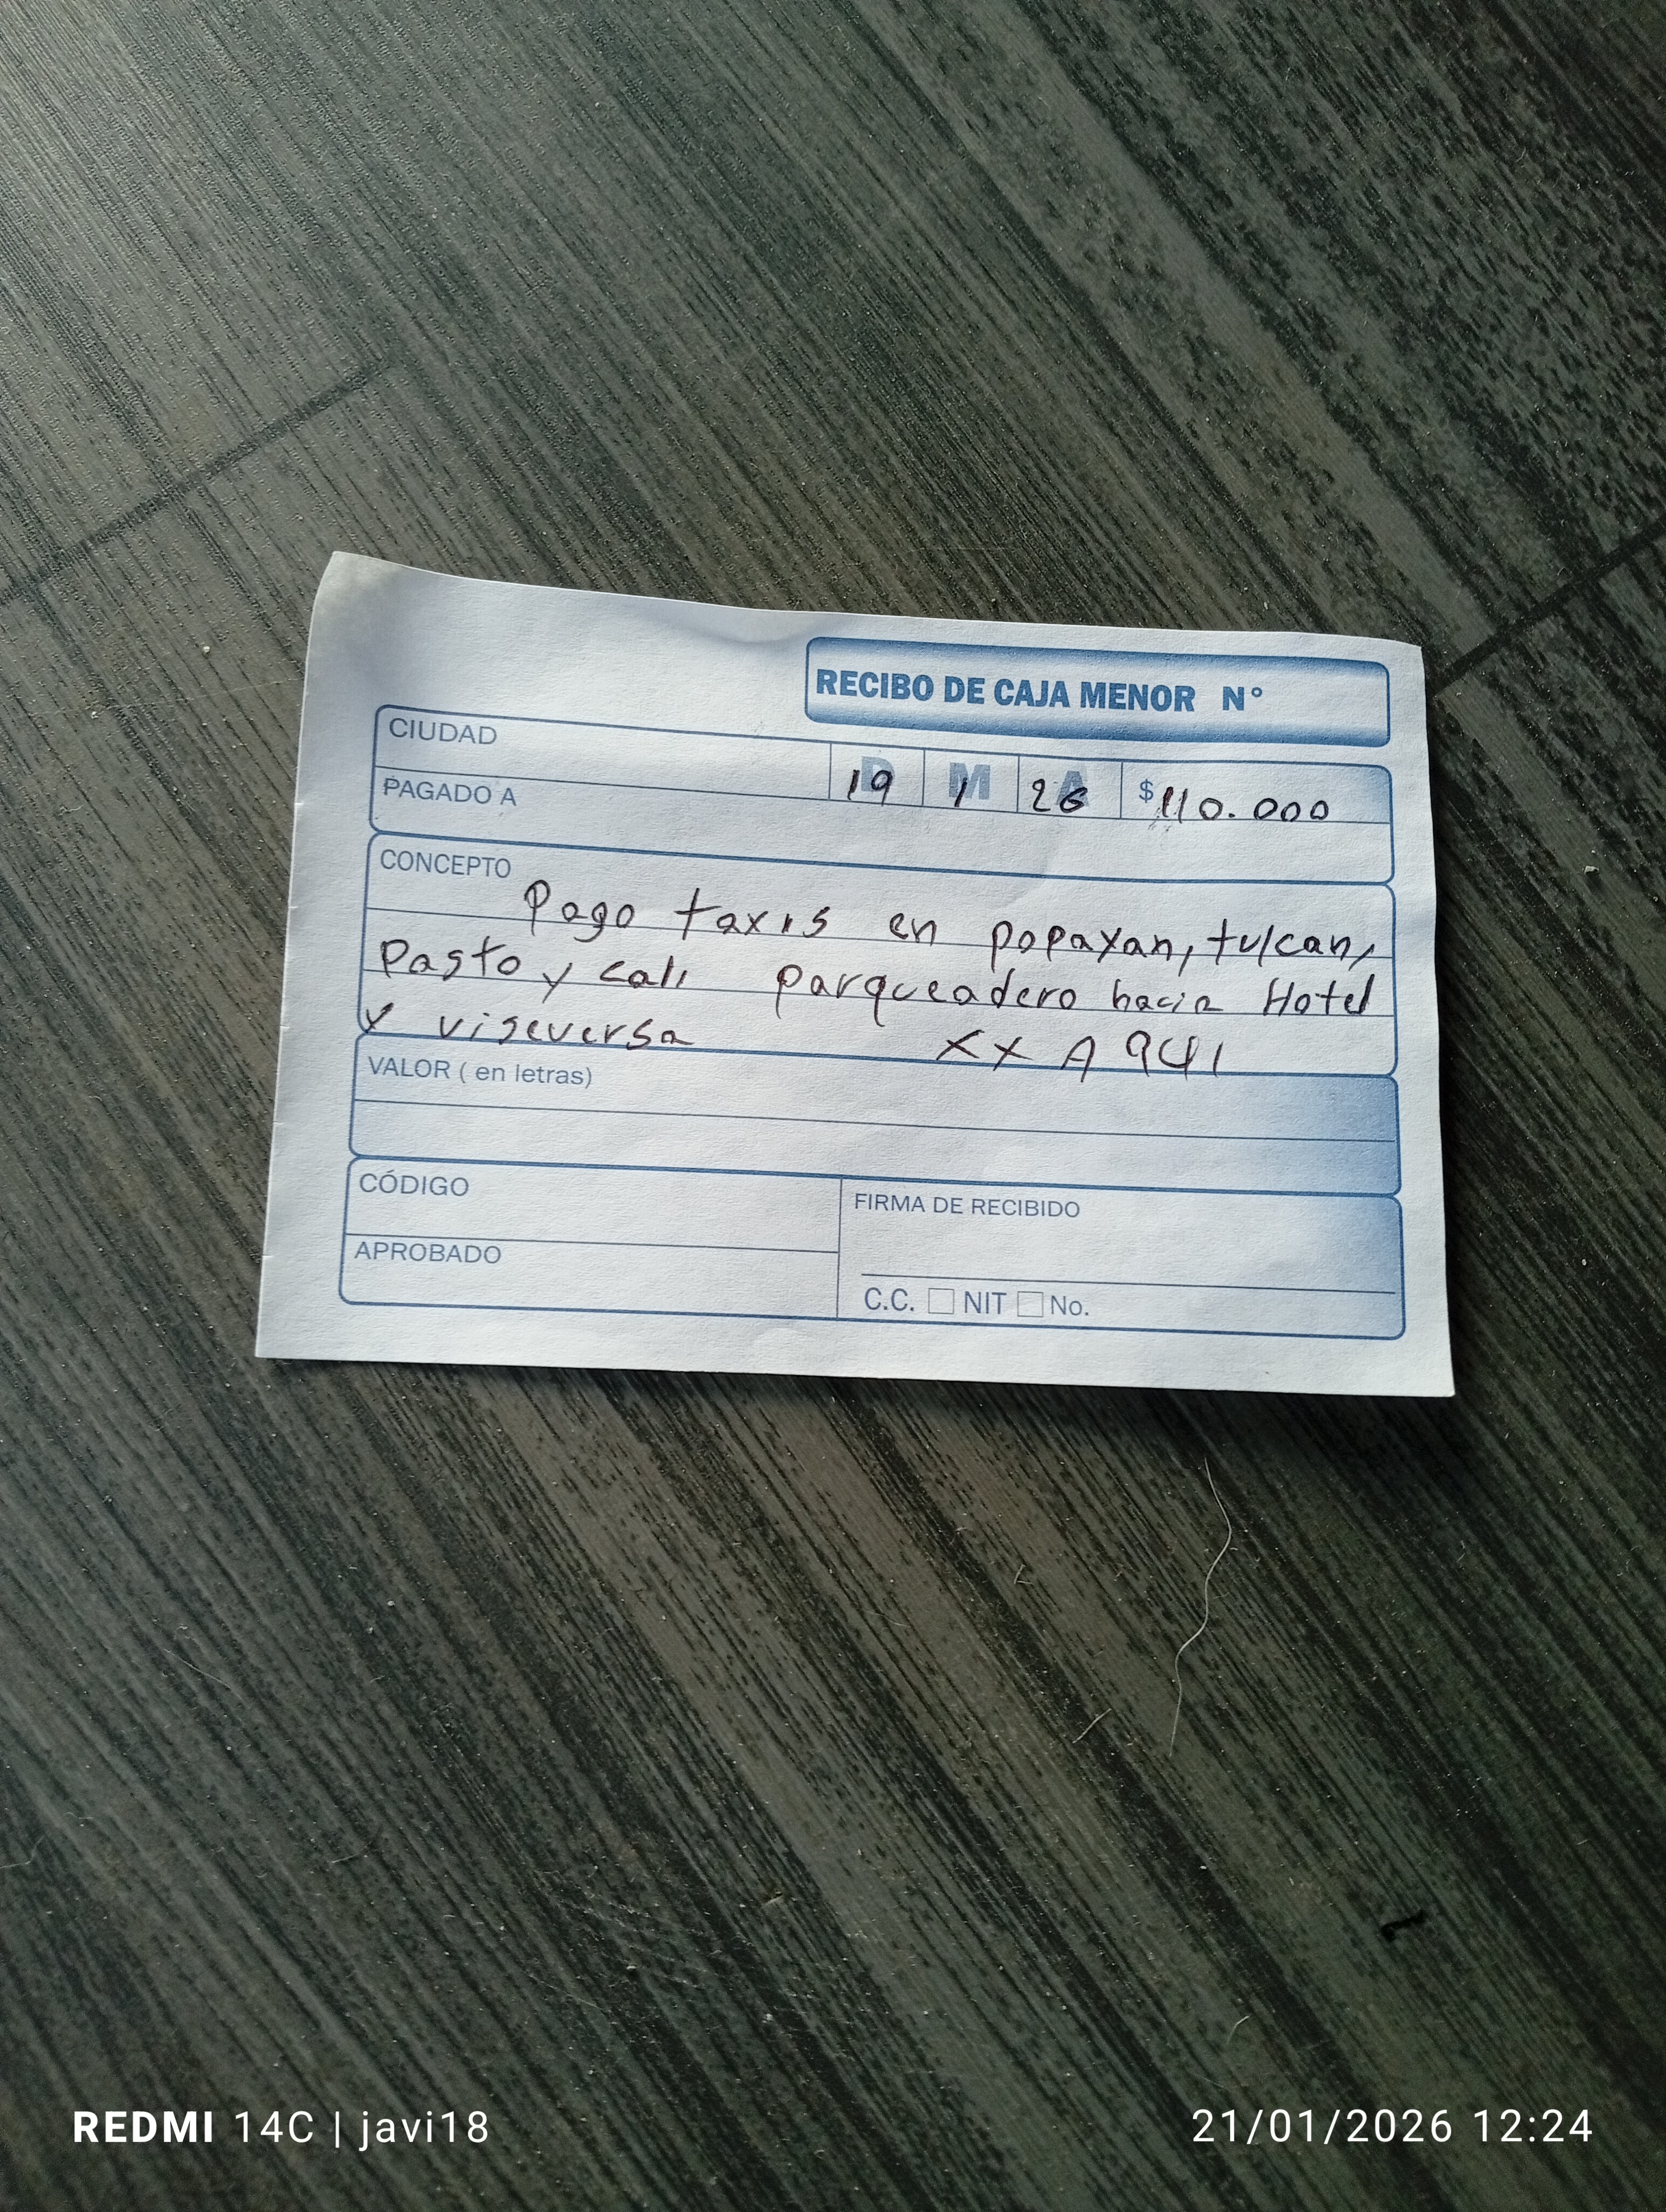 RECIBO DE CAJA MENOR N°
CIUDAD
D M A
19 1 26 $110.000
PAGADO A
CONCEPTO
Pago taxis en popayan, tulcan,
Pasto y cali parqueadero hacia Hotel
y viseversa XXA941
VALOR ( en letras)
CÓDIGO
FIRMA DE RECIBIDO
APROBADO
C.C. NIT No.
REDMI 14C | javi18
21/01/2026 12:24